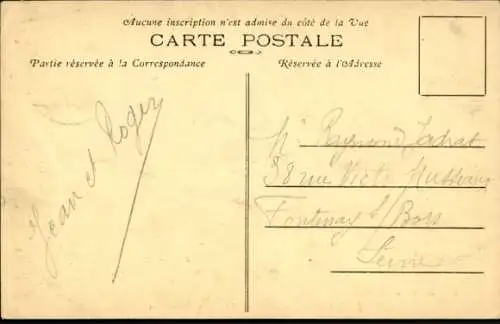 Aucune inscription n'est admise du côté de la Vue
CARTE POSTALE
Partie réservée à la Correspondance
Réservée à l'Adresse
Jean et Roger
Mr Raymond
38 rue Victor
Fontenay s/Bois
Seine